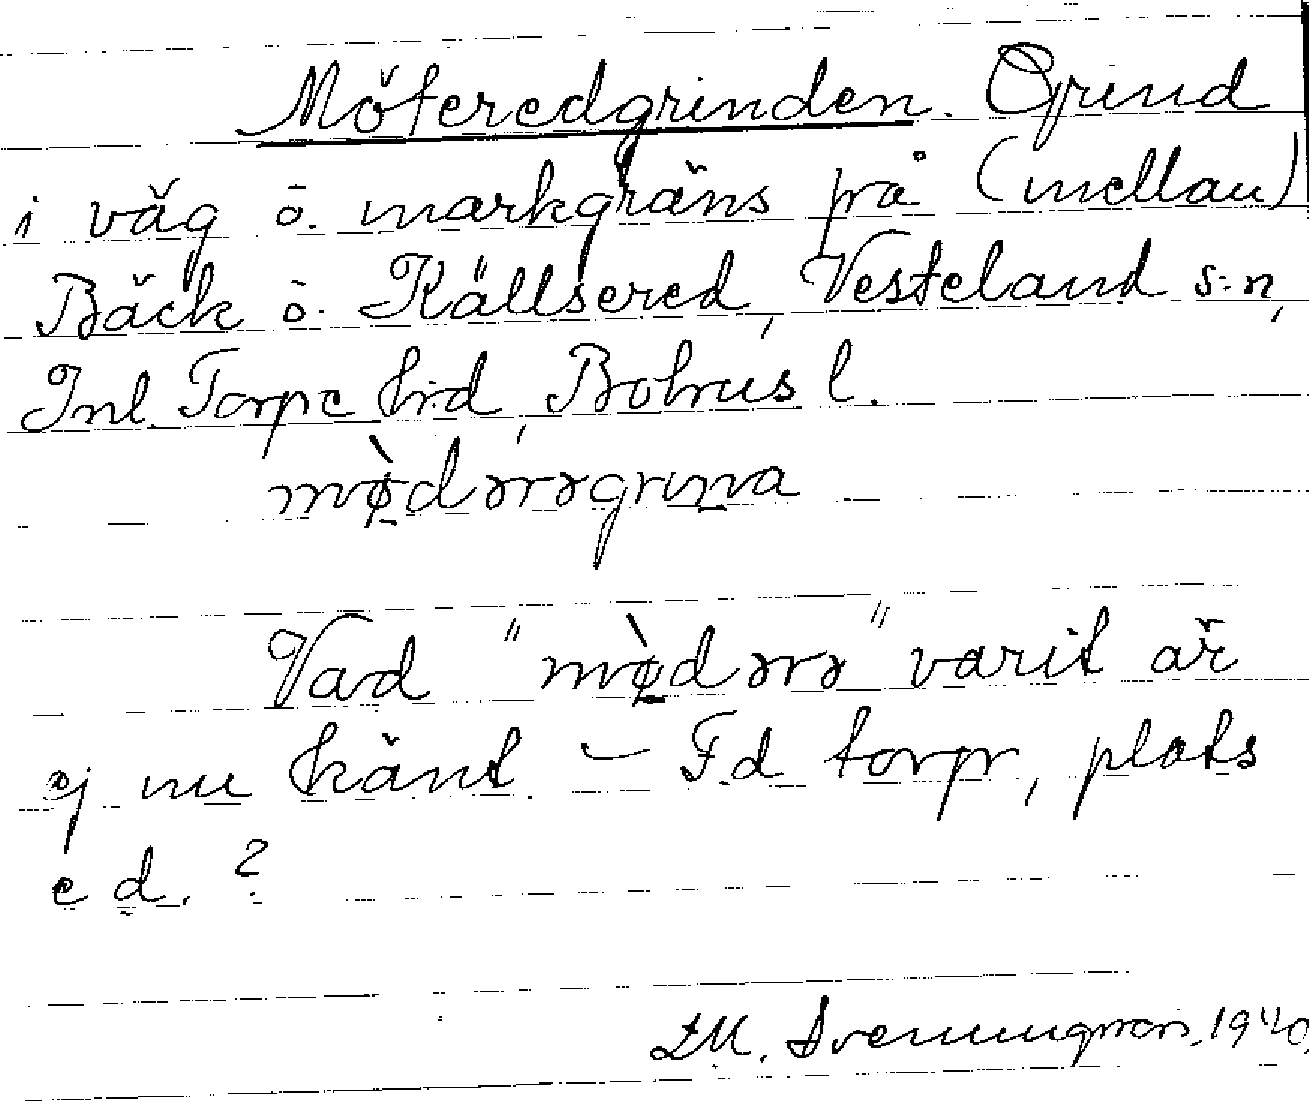 Möteredgrinden. Grind
i väg ö. markgräns på (mellan)
Bäck o. Källsered, Vesteland s:n,
Inl. Torpe hd, Bohus l.
mø̀dərəgrına
Vad "mø̀dərə" varit är
ej nu känt – F.d torp, plats
e d. ?
M. Svenungsson, 1940